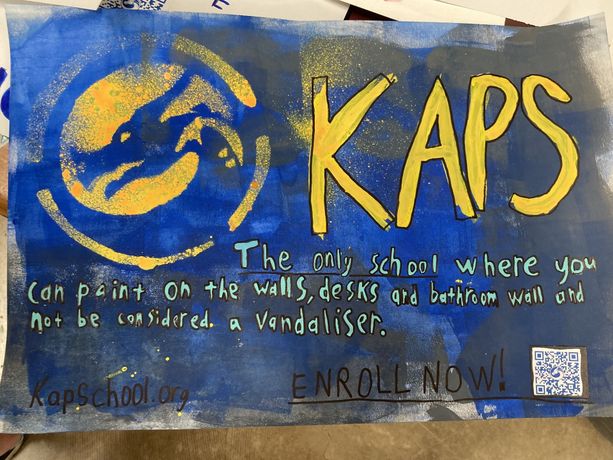 KAPS
The only school where you
can paint on the walls, desks and bathroom wall and
not be considered a vandaliser.
Kapschool.org
ENROLL NOW!